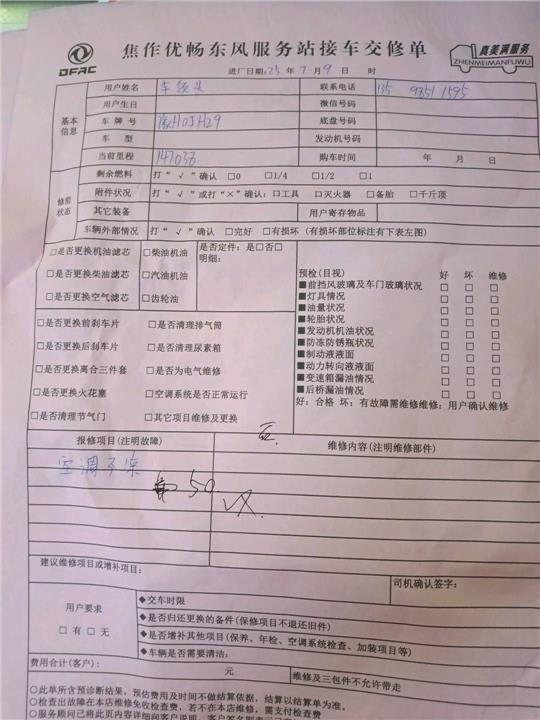 DFAC
焦作优畅东风服务站接车交修单
真美满服务
ZHENMEIMANFUWU
进厂日期:25 年 7 月 9 日 时
基本信息
用户姓名
联系电话 135 9351 1595
用户生日 微信号码
车牌号 底盘号码
车型 发动机号码
当前里程 147038 购车时间 年 月 日
修前状态
剩余燃料 打“√”确认 □0 □1/4 □1/2 □1
附件状况 打“√”或打“×”确认:□工具 □灭火器 □备胎 □千斤顶
其它装备 用户寄存物品
车辆外部情况 打“√”确认 □完好 □有损坏 (有损坏部位标注有下表左图)
□是否更换机油滤芯 □柴油机油 是否定件:是□否□
明细:
□是否更换柴油滤芯 □汽油机油
□是否更换空气滤芯 □齿轮油
□是否更换前刹车片 □是否清理排气筒
□是否更换后刹车片 □是否清理尿素箱
□是否更换离合三件套 □是否为电气维修
□是否更换火花塞 □空调系统是否正常运行
□是否清理节气门 □其它项目维修及更换
预检(目视) 好 坏 维修
■前挡风玻璃及车门玻璃状况 □ □ □
■灯具情况 □ □ □
■油量状况 □ □ □
■轮胎状况 □ □ □
■发动机机油状况 □ □ □
■防冻防锈瓶状况 □ □ □
■制动液液面 □ □ □
■动力转向液液面 □ □ □
■变速箱漏油情况 □ □ □
■后桥漏油情况 □ □ □
好:合格 坏:有故障需维修维修:用户确认维修
报修项目(注明故障) 维修内容(注明维修部件)
空调不凉
50
建议维修项目或增补项目:
司机确认签字:
用户要求
□有 □无
◆交车时限
◆是否归还更换的备件(保修项目不退还旧件)
◆是否增补其他项目(保养、年检、空调系统检查、加装项目等)
◆车辆是否需要清洁:
费用合计(客户): 元 维修及三包件不允许带走
○此单所含预诊断结果,预估费用及时间不做结算依据,结算以结算单为准。
○检查出故障在本店维修免收检查费,若不在本店维修,需支付检查费